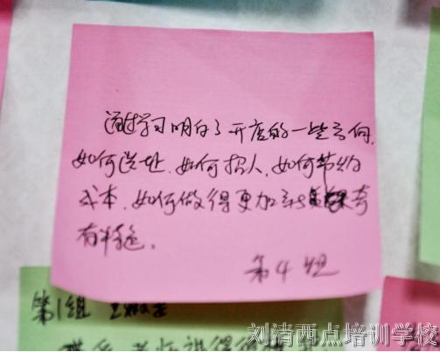 通过学习明白了开店的一些方向，
如何选址，如何招人，如何节约
成本，如何做得更加
有特色。
第4组
第1组
刘清西点培训学校